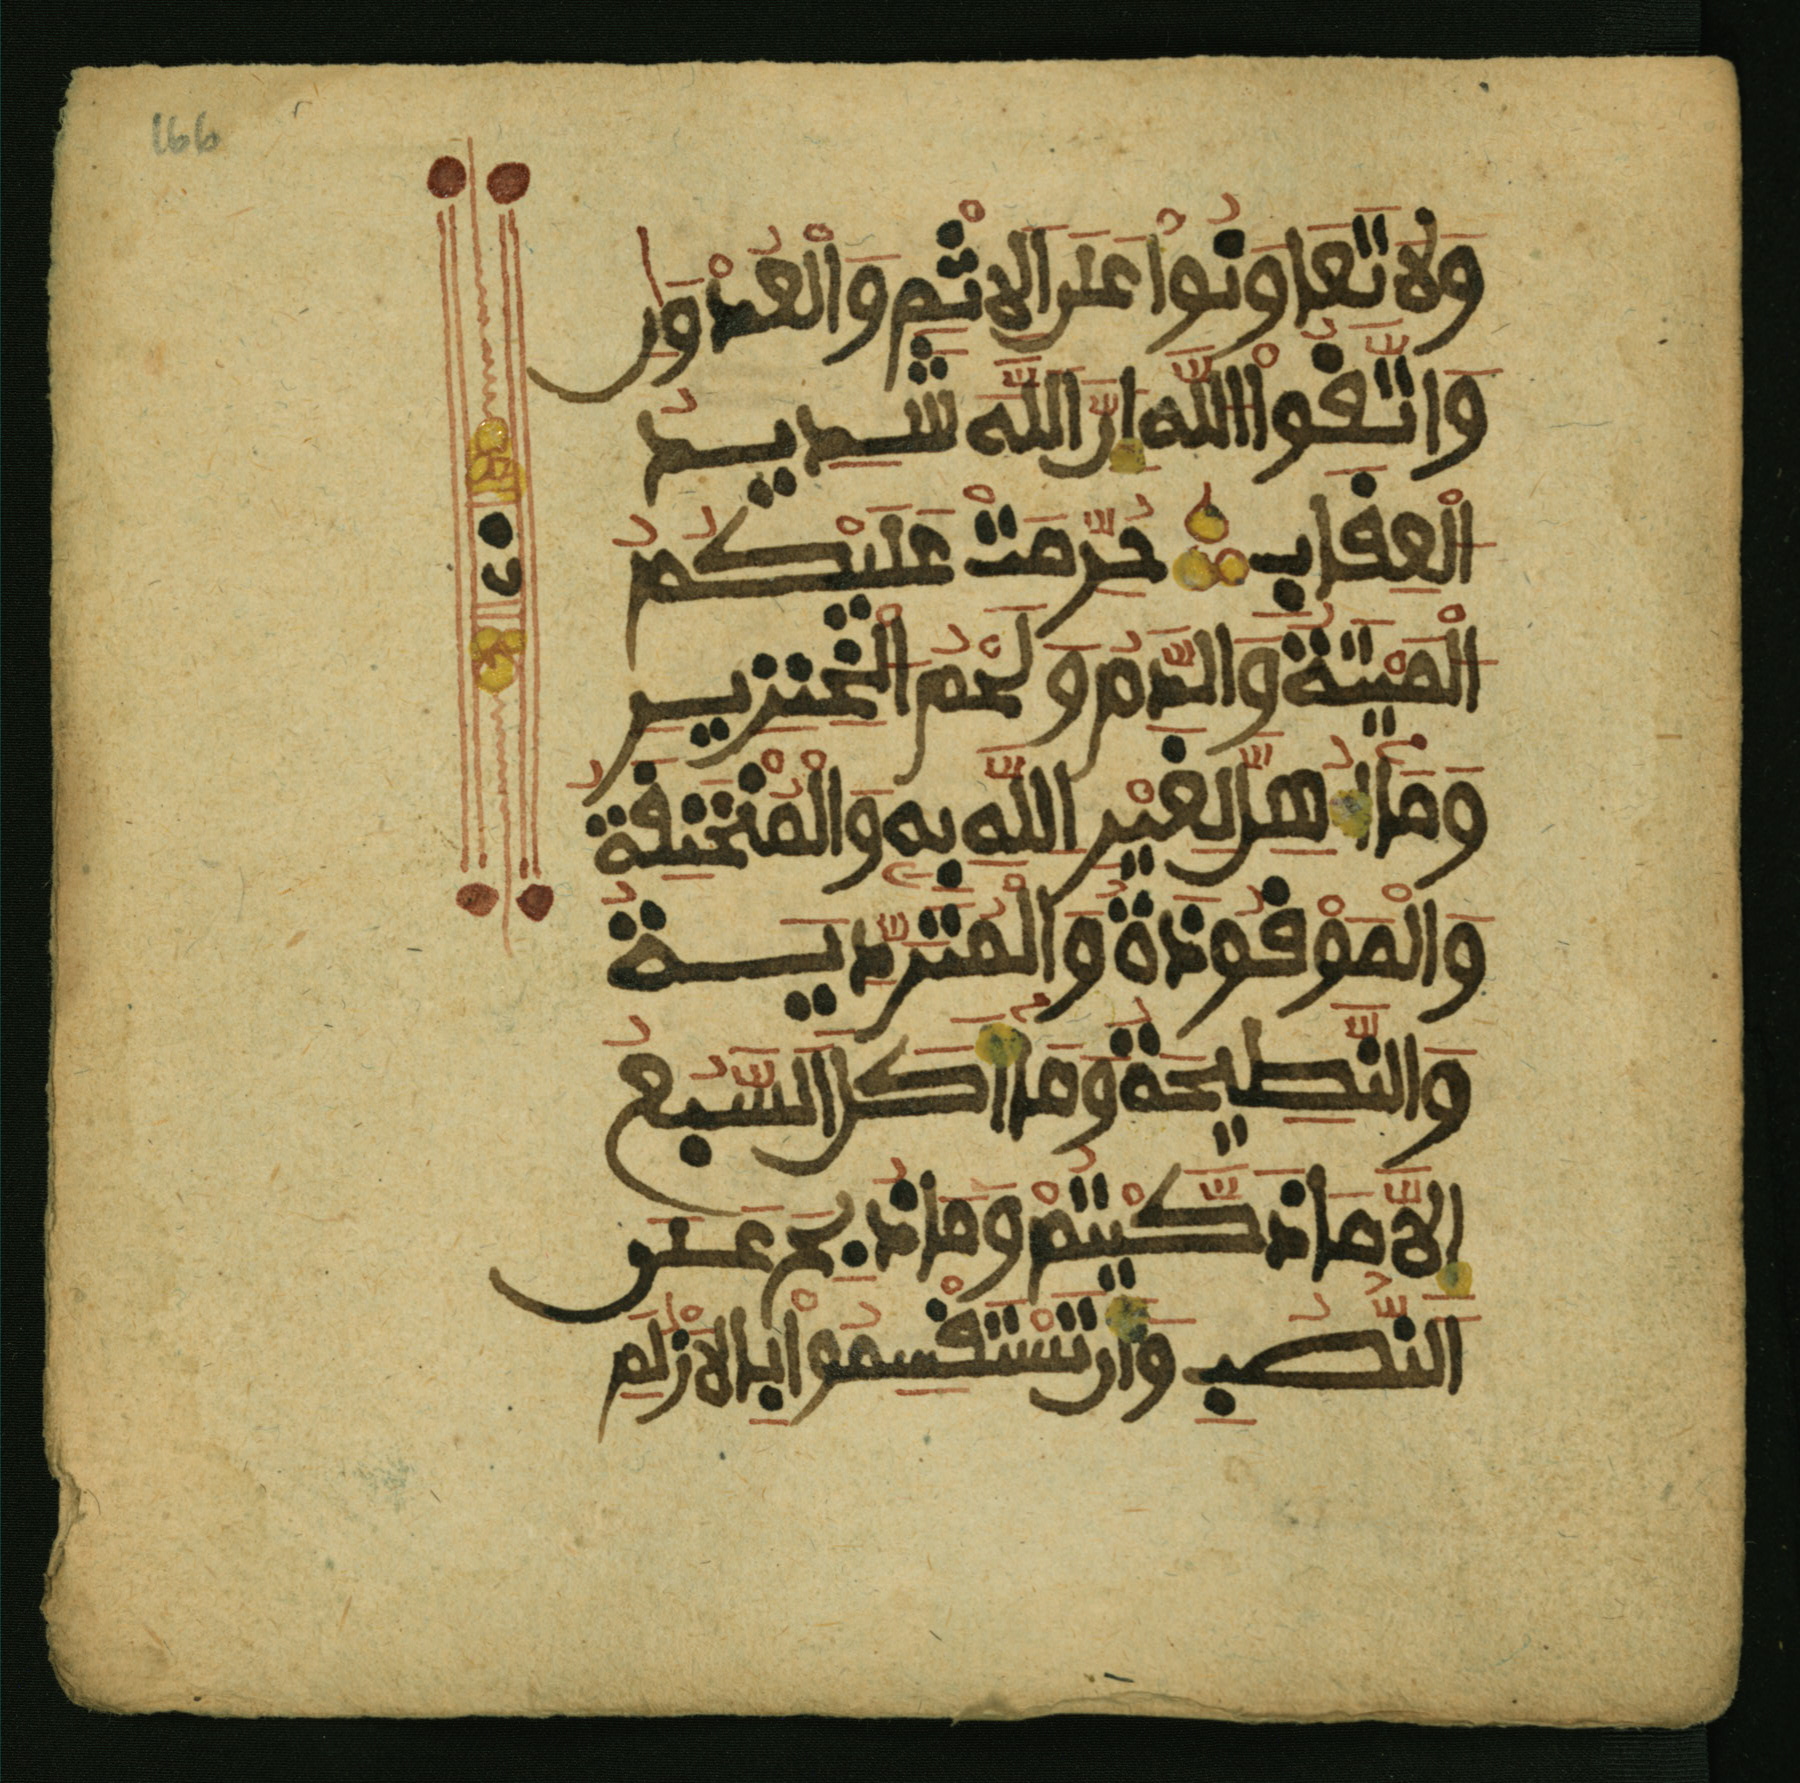 166
وَلَا تَعَاوَنُواْ عَلَى الِاثْمِ وَالْعُدْوَٰنِ
وَاتَّقُواْ اللَّهَ إِنَّ اللَّهَ شَدِيدُ
الْعِقَابِ حُرِّمَتْ عَلَيْكُمُ
الْمَيْتَةُ وَالدَّمُ وَلَحْمُ الْخِنزِيرِ
وَمَا أُهِلَّ لِغَيْرِ اللَّهِ بِهِ وَالْمُنْخَنِقَةُ
وَالْمَوْقُوذَةُ وَالْمُتَرَدِّيَةُ
وَالنَّطِيحَةُ وَمَا أَكَلَ السَّبُعُ
إِلَّا مَا ذَكَّيْتُمْ وَمَا ذُبِحَ عَلَى
النُّصُبِ وَأَن تَسْتَقْسِمُواْ بِالَازْلَٰمِ